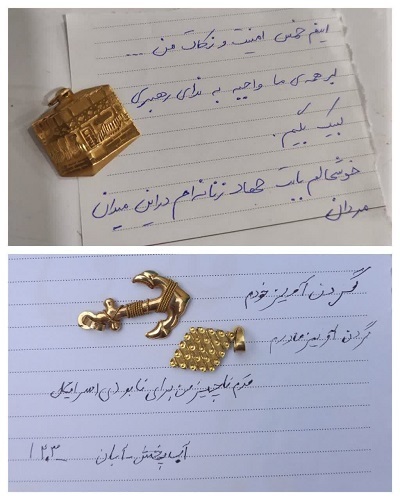 اینم خمس امنیت و زکات من ...
بر همه‌ی ما واجبه به ندای رهبری
لبیک بگیم.
خوشحالم بابت جهاد زنانه‌ام در این میدان
مردان
گردن آویز خودم
گردن آویز مادرم
قدم ناچیز من برای نابودی اسرائیل
آب پخش - آبان